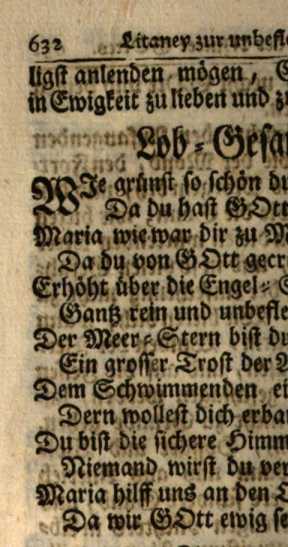 632 Litaney zur unbefle
ligst anlenden mögen,
in Ewigkeit zu lieben und z
Lob-Gesa
WIe grünst so schön du
Da du hast GOtt
Maria, wie war dir zu M
Da du von GOtt gecr
Erhöht über die Engel-
Gantz rein und unbefle
Der Meer-Stern bist du
Ein grosser Trost der
Dem Schwimmenden ei
Dern wollest dich erba
Du bist die sichere Himm
Niemand wirst du ver
Maria hilff uns an den
Da wir GOtt ewig se